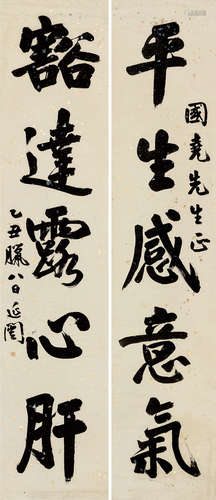 平生感意氣
國堯先生正
豁達露心肝
乙丑臘八日延闓